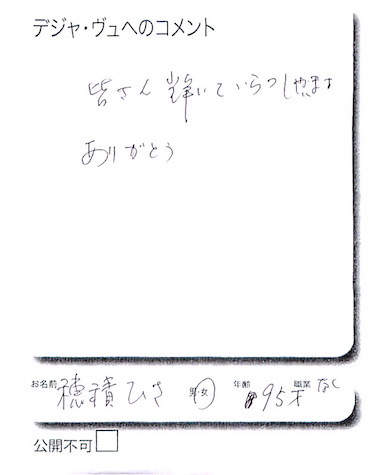 デジャ・ヴュへのコメント
皆さん輝いていらっしゃます
ありがとう
お名前 穂積ひさ 男・女 年齢 95才 職業 なし
公開不可